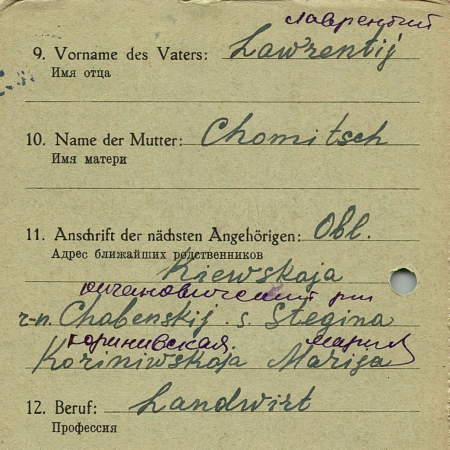 лаврентий
9. Vorname des Vaters: Lawrentij
Имя отца
10. Name der Mutter: Chomitsch
Имя матери
11. Anschrift der nächsten Angehörigen: Obl.
Адрес ближайших родственников
Kiewskaja
кагановический рн
r-n. Chabenskij. s. Stegina
юринивская мария
Koriniwskaja Marija
12. Beruf: Landwirt
Профессия